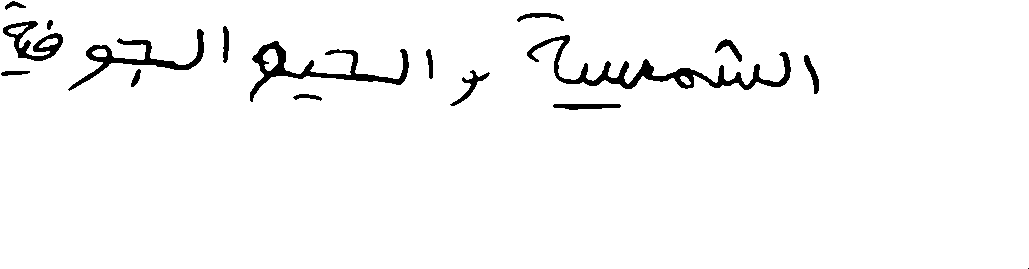 الشمسية والحيو الجوفية